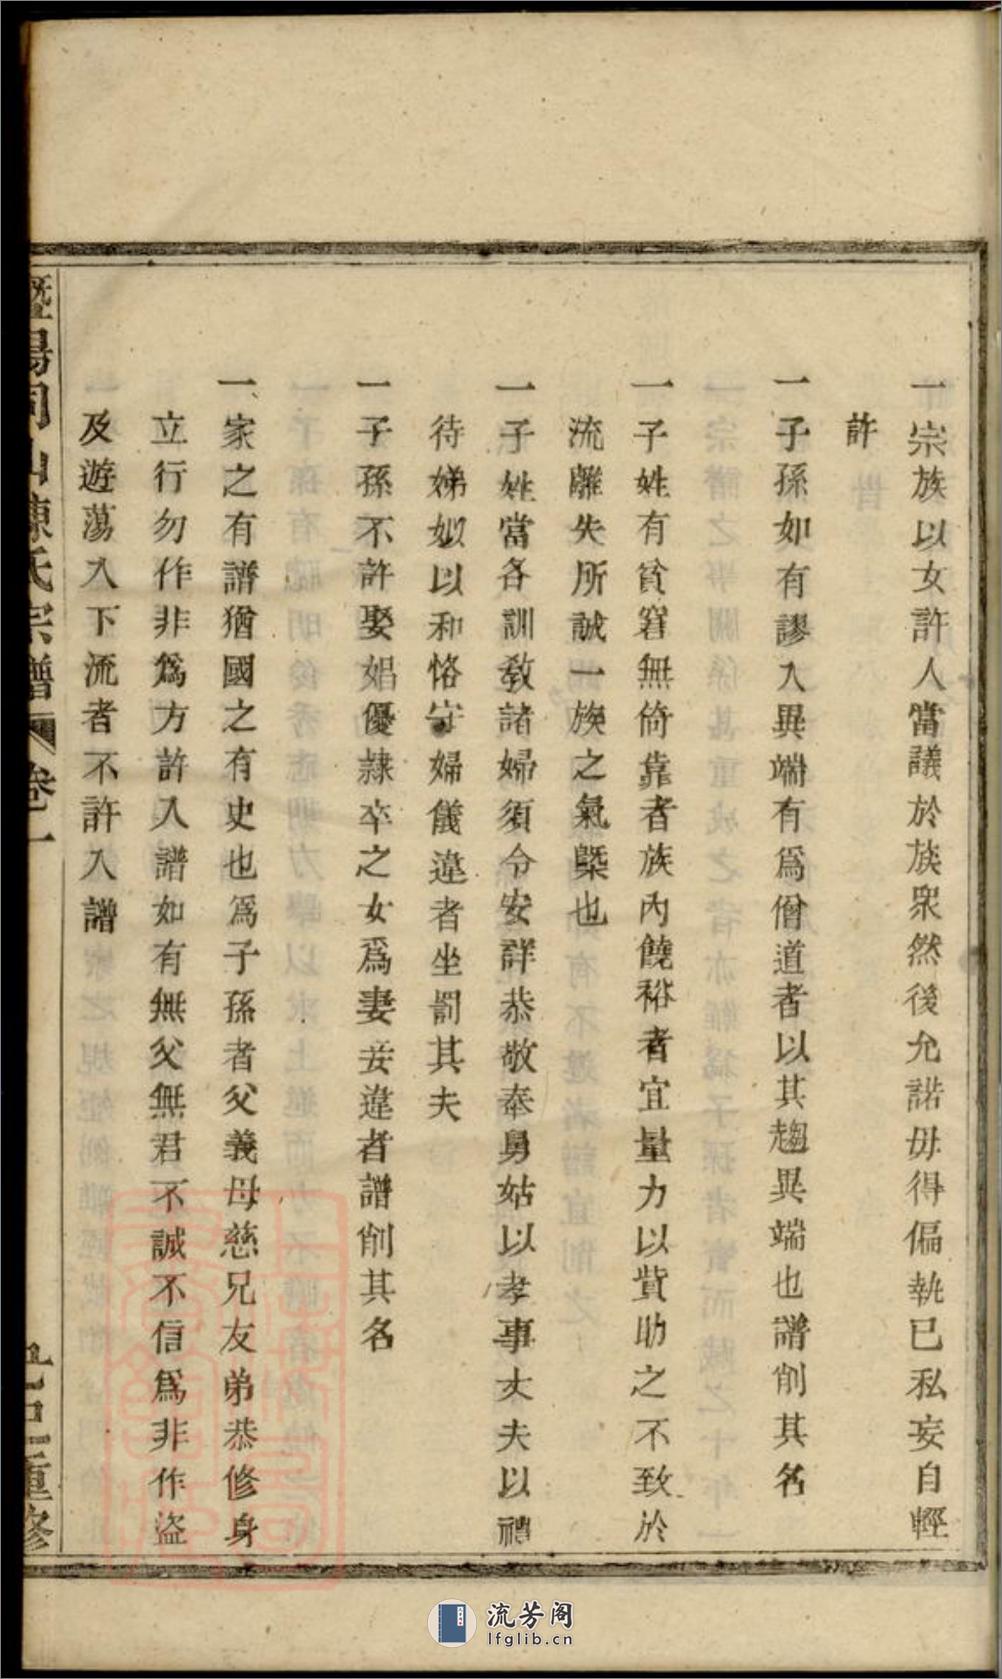 一宗族以女許人當議於族衆然後允諾毋得偏執已私妄自輕
許
一子孫如有謬入異端有爲僧道者以其趨異端也譜削其名
一子姓有貧窘無倚靠者族內饒裕者宜量力以貲助之不致於
流離失所誠一族之氣槩也
一子姓當各訓敎諸婦須令安詳恭敬奉舅姑以孝事丈夫以禮
待娣姒以和恪守婦儀違者坐罰其夫
一子孫不許娶娼優隸卒之女爲妻妾違者譜削其名
一家之有譜猶國之有史也爲子孫者父義母慈兄友弟恭修身
立行勿作非爲方許入譜如有無父無君不誠不信爲非作盜
及遊蕩入下流者不許入譜
暨陽同山陳氏宗譜 卷一 乙巳重修
流芳阁
lfglib.cn